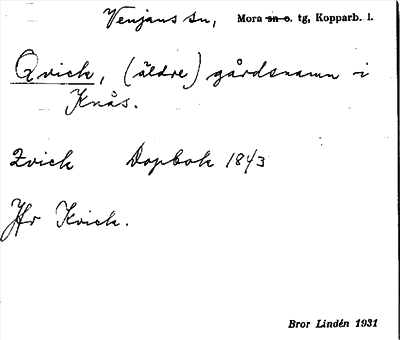 Venjans sn, Mora sn o. tg, Kopparb. l.
Qvick, (äldre) gårdsnamn i
Knås.
Qvick Dopbok 1843
Jfr Kvick.
Bror Lindén 1931